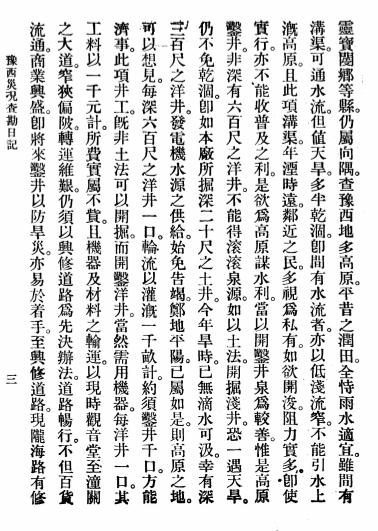 靈寶閿鄉等縣。仍屬向隅。查豫西地多高原。平昔之潤田。全恃雨水適宜。雖間有
溝渠。可通水流。但値天旱。多半乾涸。卽間有水流者。亦以低淺流窄。不能引水上
漑高原。且此項溝渠。年湮時遠。鄰近之民。多視爲私有。如欲開浚。阻力實多。卽使
實行。亦不能收普及之利。是欲爲高原謀水利。當以開鑿井泉爲較善。惟是高原
鑿井。非深有六百尺之洋井。不能得滾滾泉源。如以土法開掘淺井。恐一遇天旱。
仍不免乾涸。卽如本廠所掘深二十尺之土井。今年旱時。已無滴水可汲。幸有深
三百尺之洋井。發電機水源之供給。始免告竭。鄭地平陽。已屬如是。則高原之地。
可以想見。每深六百尺之洋井一口。輪流以灌漑一千畝計。約須鑿井千口。方能
濟事。此項井工。旣非土法可以開掘。而開鑿洋井。當然需用機器。每洋井一口。其
工料以一千元計。所費實屬不貲。且機器及材料之輸運。以現時觀音堂至潼關
之大道。窄狹偏陂。轉運維艱。仍須以興修道路爲先決辦法。道路暢行。不但百貨
流通。商業興盛。卽將來鑿井以防旱災。亦易於着手。至興修道路。現隴海路有修
豫西災況查勘日記
三